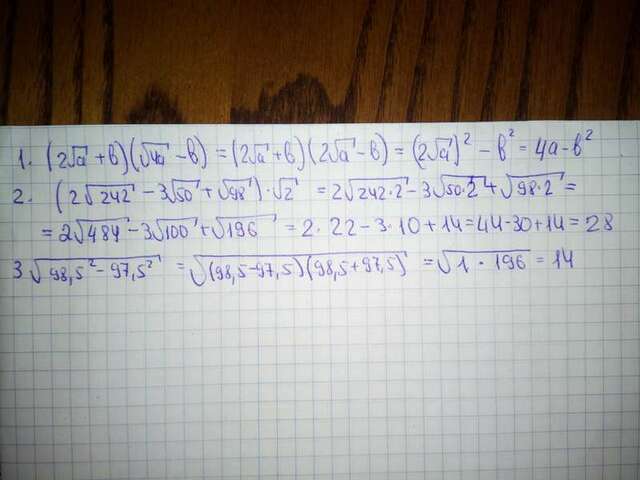 1. (2√a + b)(√4a - b) = (2√a + b)(2√a - b) = (2√a)² - b² = 4a - b²
2. (2√242 - 3√50 + √98) · √2 = 2√242·2 - 3√50·2 + √98·2 =
= 2√484 - 3√100 + √196 = 2·22 - 3·10 + 14 = 44 - 30 + 14 = 28
3 √98,5² - 97,5² = √(98,5 - 97,5)(98,5 + 97,5) = √1 · 196 = 14